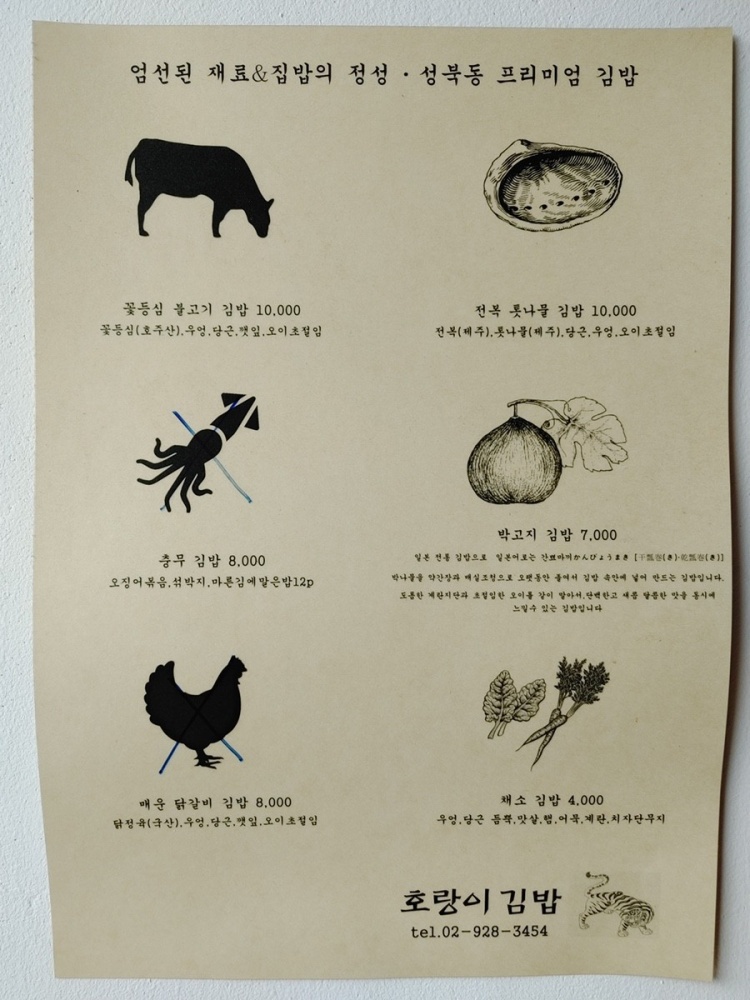 엄선된 재료&집밥의 정성 · 성북동 프리미엄 김밥
꽃등심 불고기 김밥 10,000
꽃등심(호주산),우엉,당근,깻잎,오이초절임
전복 톳나물 김밥 10,000
전복(제주),톳나물(제주),당근,우엉,오이초절임
충무 김밥 8,000
오징어볶음,섞박지,마른김에말은밥12p
박고지 김밥 7,000
일본 전통 김밥으로 일본어로는 간뾰마끼かんぴょうまき [干瓢巻(き)·乾瓢巻(き)]
박나물을 약간장과 매실조청으로 오랫동안 졸여서 김밥 속안에 넣어 만드는 김밥입니다.
도톰한 계란지단과 초절임한 오이를 같이 말아서,담백하고 새콤 달콤한 맛을 동시에
느낄수 있는 김밥입니다
매운 닭갈비 김밥 8,000
닭정육(국산),우엉,당근,깻잎,오이초절임
채소 김밥 4,000
우엉,당근 듬뿍,맛살,햄,어묵,계란,치자단무지
호랑이 김밥
tel.02-928-3454